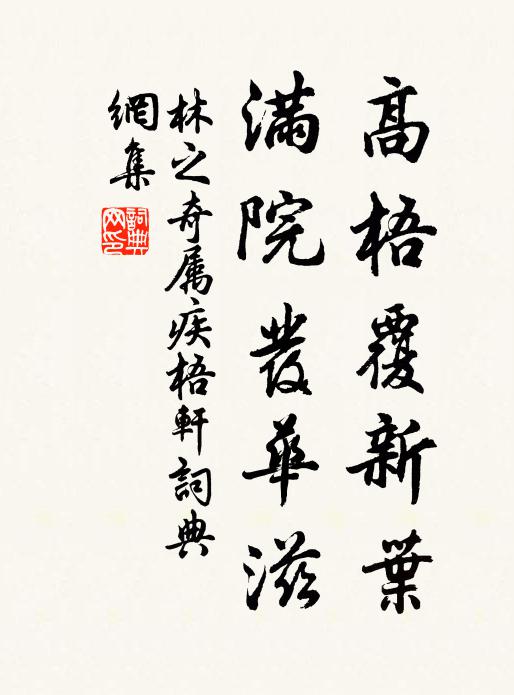 高梧覆新葉
滿院發華滋
林之奇屬疾梧軒詞典
網集
詞典
网印